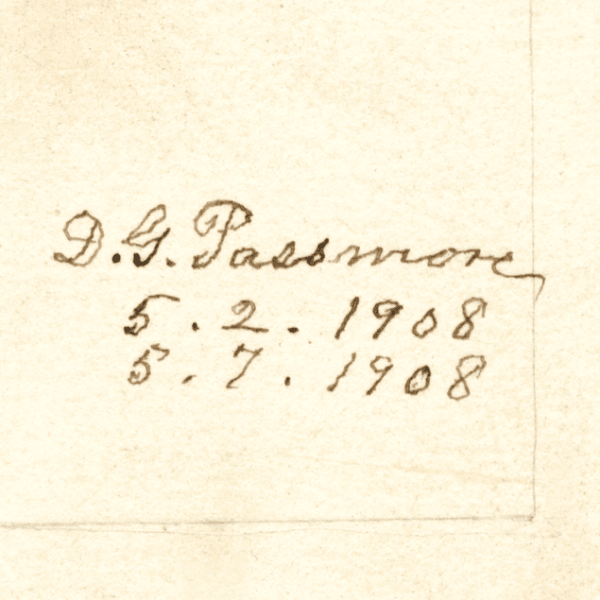 D.G. Passmore
5.2.1908
5.7.1908